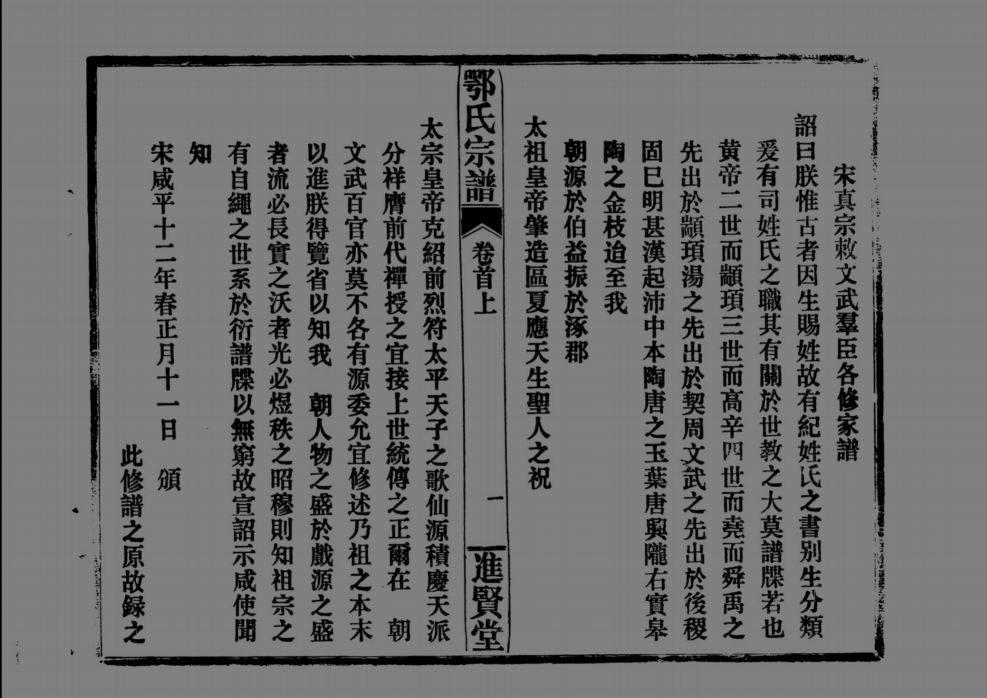 宋真宗敕文武羣臣各修家譜
詔曰朕惟古者因生賜姓故有紀姓氏之書別生分類
爰有司姓氏之職其有關於世教之大莫譜牒若也
黄帝二世而顓頊三世而高辛四世而堯而舜禹之
先出於顓頊湯之先出於契周文武之先出於後稷
固巳明甚漢起沛中本陶唐之玉葉唐興隴右實皋
陶之金枝迨至我
朝源於伯益振於涿郡
太祖皇帝肇造區夏應天生聖人之祝
鄂氏宗譜
卷首上
一
進賢堂
太宗皇帝克紹前烈符太平天子之歌仙源積慶天派
分祥膺前代禪授之宜接上世統傳之正爾在 朝
文武百官亦莫不各有源委允宜修述乃祖之本末
以進朕得覽省以知我 朝人物之盛於戲源之盛
者流必長實之沃者光必煜秩之昭穆則知祖宗之
有自繩之世系於衍譜牒以無窮故宣詔示咸使聞
知
宋咸平十二年春正月十一日 頒
此修譜之原故録之